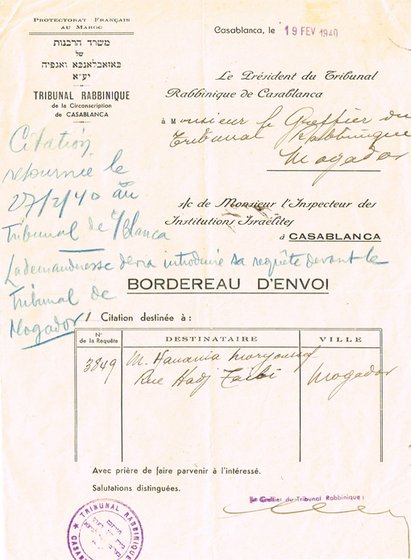 PROTECTORAT FRANÇAIS
AU MAROC
משרד הרבנות
של
קאזאבלאנקא ואגפיה
יע״א
TRIBUNAL RABBINIQUE
de la Circonscription
de CASABLANCA
Casablanca, le 19 FEV 1940
Le Président du Tribunal
Rabbinique de Casablanca
à Monsieur le Greffier du
Tribunal Rabbinique
Mogador
s/c de Monsieur l'Inspecteur des
Institutions Israélites
à CASABLANCA
Citation
retournée le
27/2/40 au
Tribunal de C/Blanca
La demanderesse devra introduire sa requête devant le
Tribunal de
Mogador
BORDEREAU D'ENVOI
1 Citation destinée à :
N°
de la Requête
DESTINATAIRE
VILLE
3849 M. Hanania Moryoussef Mogador
Rue Hadj Taibi
Avec prière de faire parvenir à l'intéressé.
Salutations distinguées.
Le Greffier du Tribunal Rabbinique :
TRIBUNAL RABBINIQUE